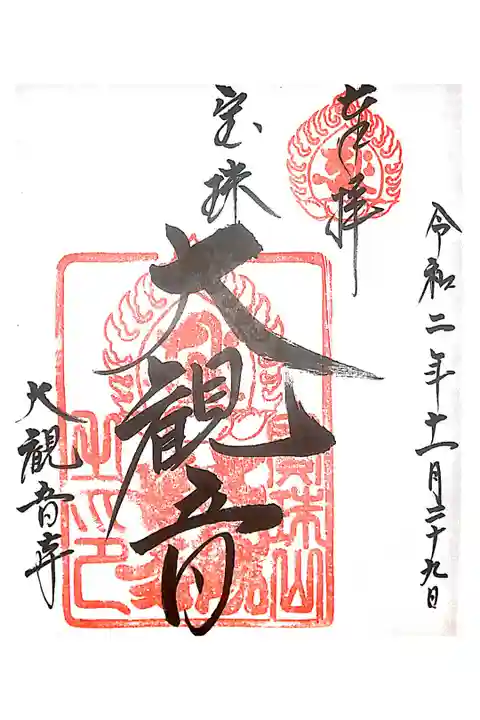 令和二年十一月二十九日
奉拝
宝珠
大観音
大観音寺